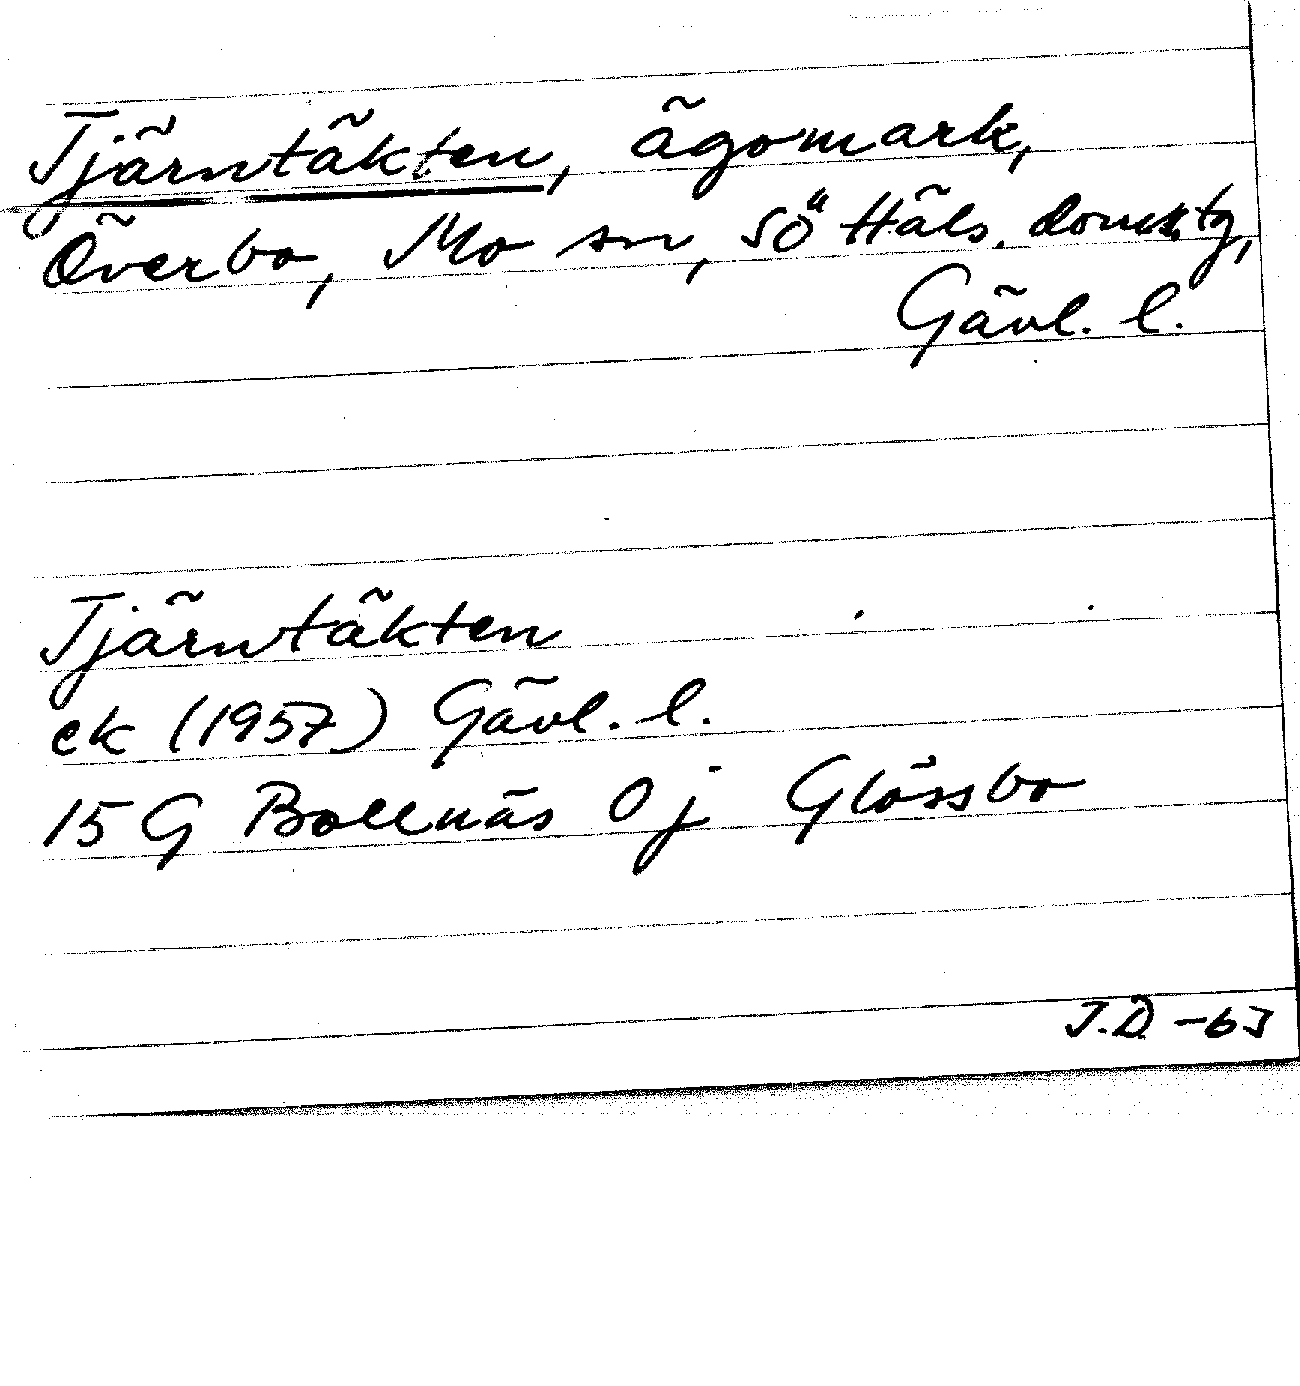 Tjärntäkten, ägomark,
Överbo, Mo sn, Sö Häls. domstg,
Gävl. l.
Tjärntäkten
ek (1957) Gävl. l.
15 G Bollnäs 0 j Glössbo
J.D -63